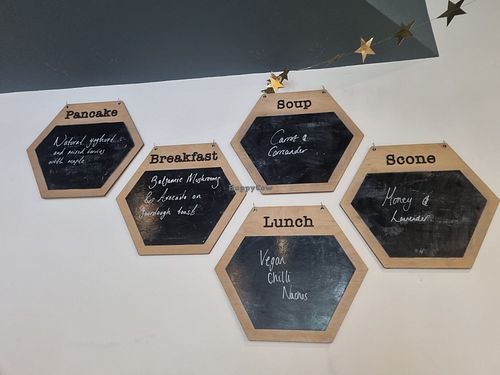 Pancake
Natural yoghurt
and mixed berries
with maple
Breakfast
Balsamic Mushrooms
& Avocado on
Sourdough toast
Soup
Carrot &
Coriander
Lunch
Vegan
Chilli
Nachos
Scone
Honey &
Lavender
HappyCow